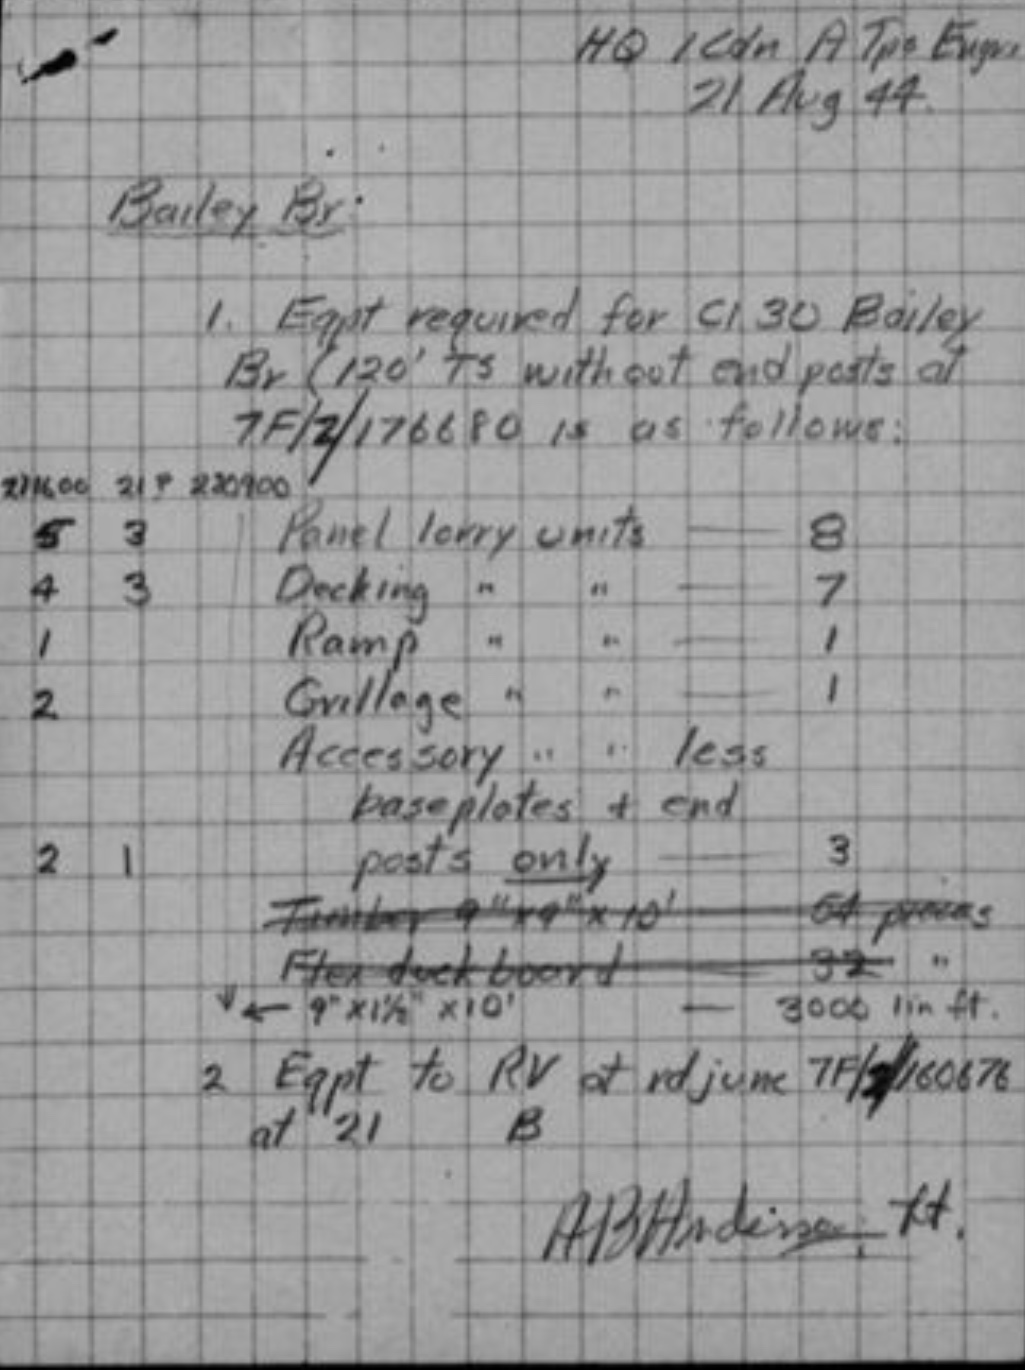 HQ 1 Cdn A Tps Engrs
21 Aug 44.
Bailey Br:
1. Eqpt required for Cl 30 Bailey
Br (120' TS without end posts at
7F/2/176680 is as follows:
211600 21? 220900
5 3 Panel lorry units — 8
4 3 Decking " " — 7
1 Ramp " " — 1
2 Grillage " " — 1
Accessory " " less
baseplates + end
2 1 posts only — 3
Timber 9" x 9" x 10' 64 pieces
Flex duck board 32 "
← 9" x 1½" x 10' — 3000 lin ft.
2 Eqpt to RV at rd junc 7F/2/160676
at 21 B
A B Anderson Lt.